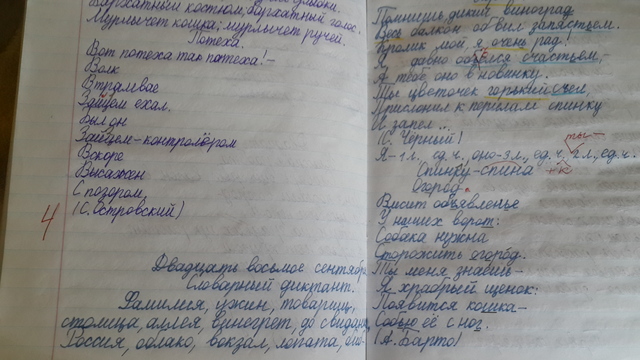 Бархатный костюм, бархатный голос.
Мурлычет кошка; мурлычет ручей.
Потеха.
Вот потеха так потеха! –
Волк
В трамвае
Зайцем ехал.
Был он
Зайцем – контролёром
Вскоре
Высажен
С позором.
(С. Островский)
4
Двадцать восьмое сентября
Словарный диктант.
Фамилия, ужин, товарищ,
столица, аллея, винегрет, до свидания,
Россия, облако, вокзал, лопата,
Помнишь, дикий виноград
Весь балкон обвил запястьем.
Кролик мой, я очень рад!
Я давно объелся счастьем,
А тебе оно в новинку.
Ты цветочек горький съел,
Прислонил к перилам спинку
И запел...
(С. Черный)
ты –
Я – 1 л. ед. ч., оно – 3 л., ед. ч., 2 л., ед. ч.
Спинку – спина
+к
Огород.
Висит объявленье
У наших ворот:
Собака нужна
Сторожить огород.
Ты меня знаешь –
Я храбрый щенок:
Появится кошка –
Собью её с ног.
(А. Барто)